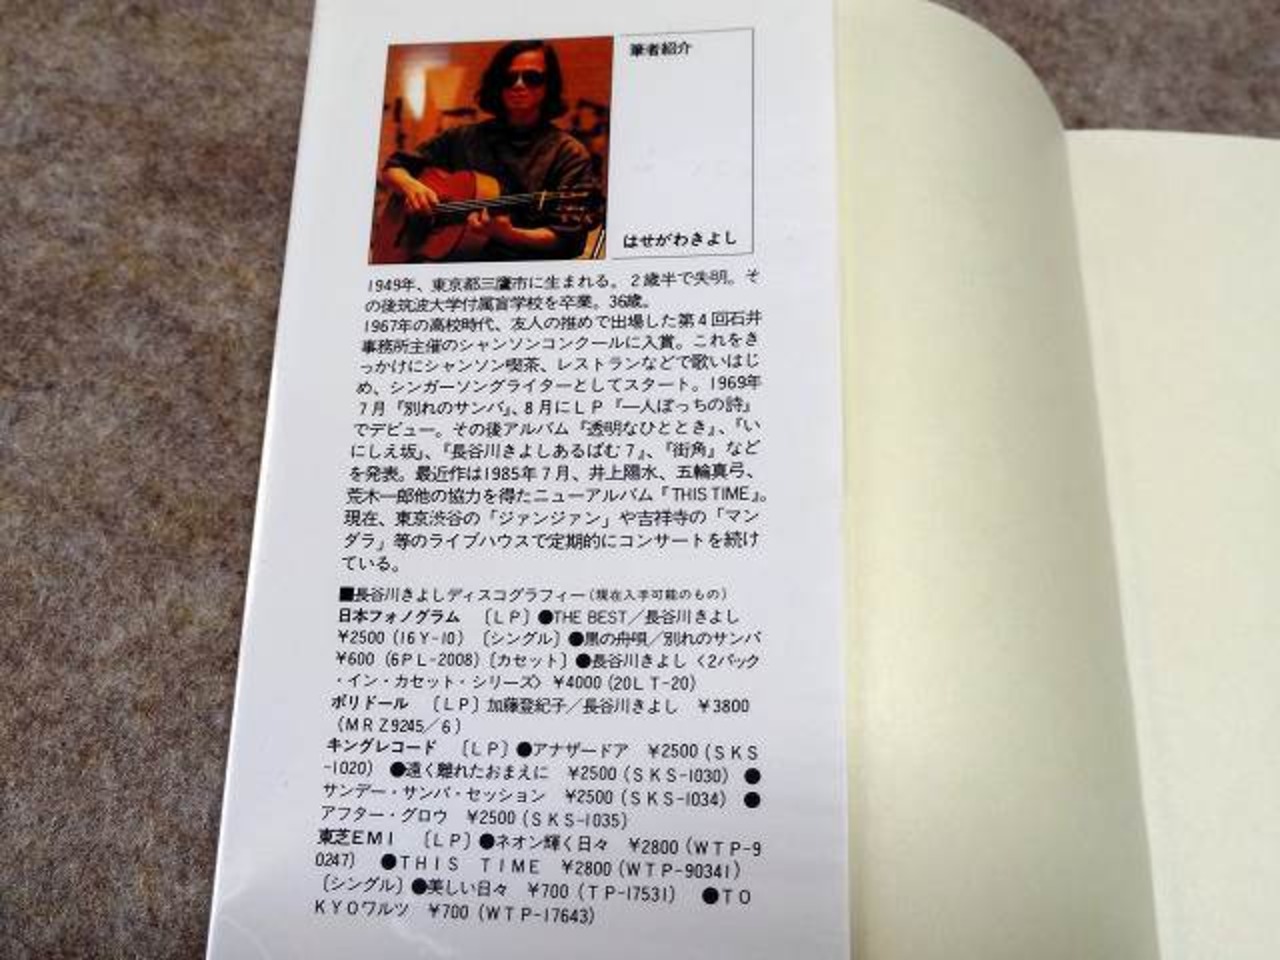 筆者紹介
はせがわきよし
1949年、東京都三鷹市に生まれる。2歳半で失明。そ
の後筑波大学付属盲学校を卒業。36歳。
1967年の高校時代、友人の推めで出場した第4回石井
事務所主催のシャンソンコンクールに入賞。これをき
っかけにシャンソン喫茶、レストランなどで歌いはじ
め、シンガーソングライターとしてスタート。1969年
7月『別れのサンバ』、8月にLP『一人ぼっちの詩』
でデビュー。その後アルバム『透明なひととき』、『い
にしえ坂』、『長谷川きよしあるばむ7』、『街角』など
を発表。最近作は1985年7月、井上陽水、五輪真弓、
荒木一郎他の協力を得たニューアルバム『THIS TIME』。
現在、東京渋谷の「ジァンジァン」や吉祥寺の「マン
ダラ」等のライブハウスで定期的にコンサートを続け
ている。
■長谷川きよしディスコグラフィー(現在入手可能のもの)
日本フォノグラム 〔LP〕●THE BEST/長谷川きよし
¥2500(16Y-10) 〔シングル〕●黒の舟唄/別れのサンバ
¥600 (6PL-2008)〔カセット〕●長谷川きよし〈2パック
・イン・カセット・シリーズ〉 ¥4000(20LT-20)
ポリドール 〔LP〕加藤登紀子/長谷川きよし ¥3800
(MRZ9245/6)
キングレコード 〔LP〕●アナザードア ¥2500(SKS
-1020) ●遠く離れたおまえに ¥2500(SKS-1030) ●
サンデー・サンバ・セッション ¥2500(SKS-1034) ●
アフター・グロウ ¥2500(SKS-1035)
東芝EMI 〔LP〕●ネオン輝く日々 ¥2800(WTP-9
0247) ●THIS TIME ¥2800(WTP-90341)
〔シングル〕●美しい日々 ¥700(TP-17531) ●TO
KYOワルツ ¥700(WTP-17643)